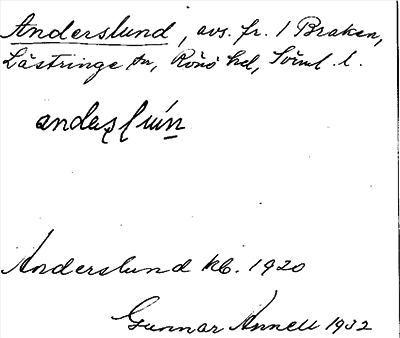 Anderslund, avs. fr. 1 Braken,
Lästringe sn, Rönö hd, Söml. l.
Anderslund kb. 1920
Gunnar Annell 1932